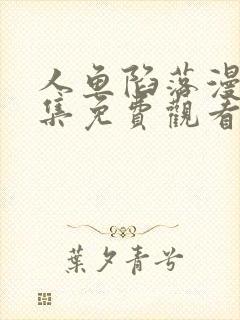 人鱼陷落漫
集免費觀看
葉夕青兮